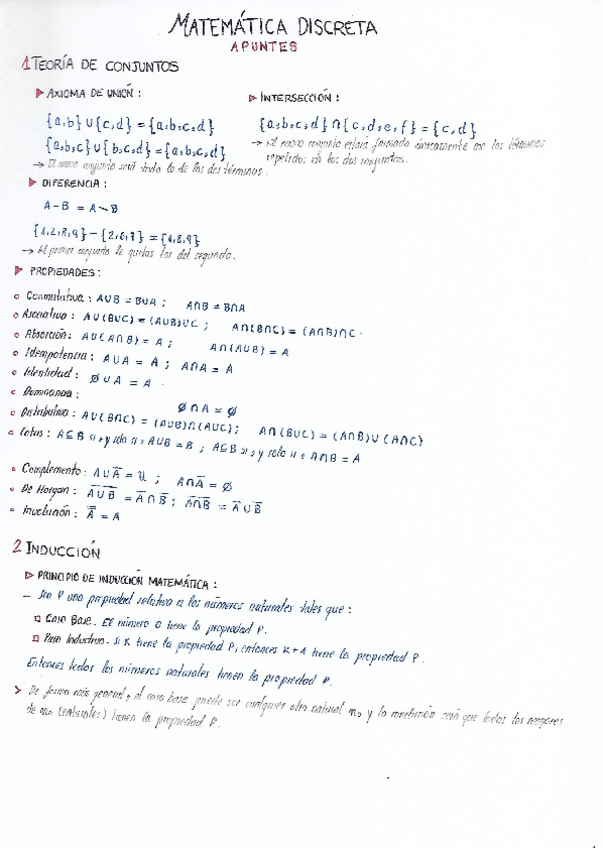 MATEMÁTICA DISCRETA
APUNTES
1 TEORÍA DE CONJUNTOS
▶ AXIOMA DE UNIÓN:
{a,b} ∪ {c,d} = {a,b,c,d}
{a,b,c} ∪ {b,c,d} = {a,b,c,d}
→ El nuevo conjunto será todo lo de los dos términos.
▶ INTERSECCIÓN:
{a,b,c,d} ∩ {c,d,e,f} = {c,d}
→ El nuevo conjunto estará formado únicamente por los términos
repetidos en los dos conjuntos.
▶ DIFERENCIA:
A-B = A∖B
{4,2,8,9} - {2,6,7} = {4,8,9}
→ Al primer conjunto le quitas los del segundo.
▶ PROPIEDADES:
o Conmutativa: A∪B = B∪A ; A∩B = B∩A
o Asociativa: A∪(B∪C) = (A∪B)∪C ; A∩(B∩C) = (A∩B)∩C
o Absorción: A∪(A∩B) = A ; A∩(A∪B) = A
o Idempotencia: A∪A = A ; A∩A = A
o Identidad: Ø∪A = A
o Dominancia: Ø∩A = Ø
o Distributiva: A∪(B∩C) = (A∪B)∩(A∪C) ; A∩(B∪C) = (A∩B)∪(A∩C)
o Cotas: A⊆B si y solo si A∪B = B ; A⊆B si y solo si A∩B = A
o Complemento: A∪A̅ = U ; A∩A̅ = Ø
o De Morgan: A̅∪̅B̅ = A̅∩B̅ ; A̅∩̅B̅ = A̅∪B̅
o Involución: A̿ = A
2 INDUCCIÓN
▶ PRINCIPIO DE INDUCCIÓN MATEMÁTICA:
– Sea P una propiedad relativa a los números naturales tales que:
□ Caso Base. El número 0 tiene la propiedad P.
□ Paso Inductivo. Si K tiene la propiedad P, entonces K+1 tiene la propiedad P.
Entonces todos los números naturales tienen la propiedad P.
> De forma más general, el caso base puede ser cualquier otro natural n₀ y la conclusión será que todos los mayores
de n₀ (naturales) tienen la propiedad P.